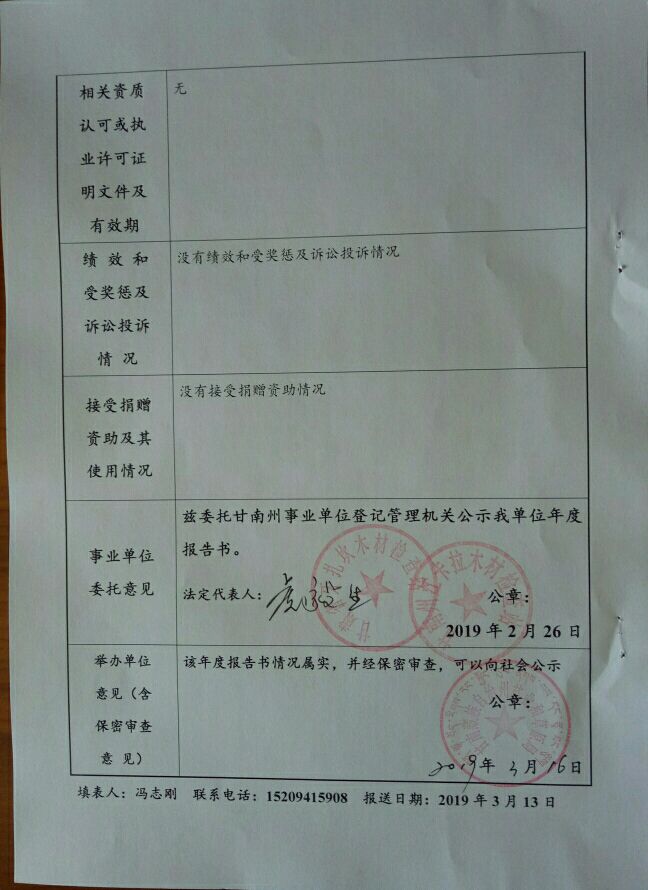 相关资质
认可或执
业许可证
明文件及
有效期
无
绩 效 和
受奖惩及
诉讼投诉
情 况
没有绩效和受奖惩及诉讼投诉情况
接受捐赠
资助及其
使用情况
没有接受捐赠资助情况
事业单位
委托意见
兹委托甘南州事业单位登记管理机关公示我单位年度
报告书。
法定代表人：
公章：
2019 年 2 月 26 日
举办单位
意见（含
保密审查
意 见）
该年度报告书情况属实，并经保密审查，可以向社会公示
公章：
2019年 3月16日
填表人：冯志刚 联系电话：15209415908 报送日期：2019 年 3 月 13 日